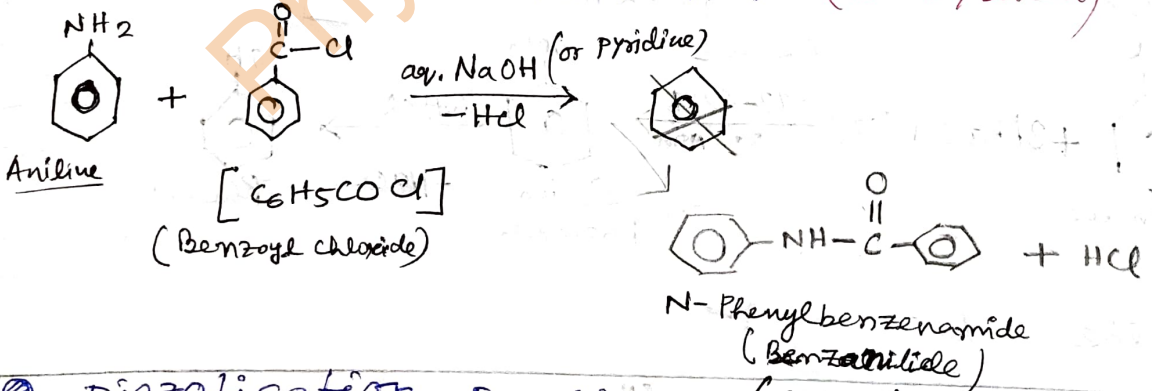 NH2
O
C—Cl
+
aq. NaOH (or pyridine)
—HCl
Aniline
[C6H5CO Cl]
(Benzoyl chloride)
O
NH—C
+ HCl
N-Phenylbenzenamide
(Benzanilide)